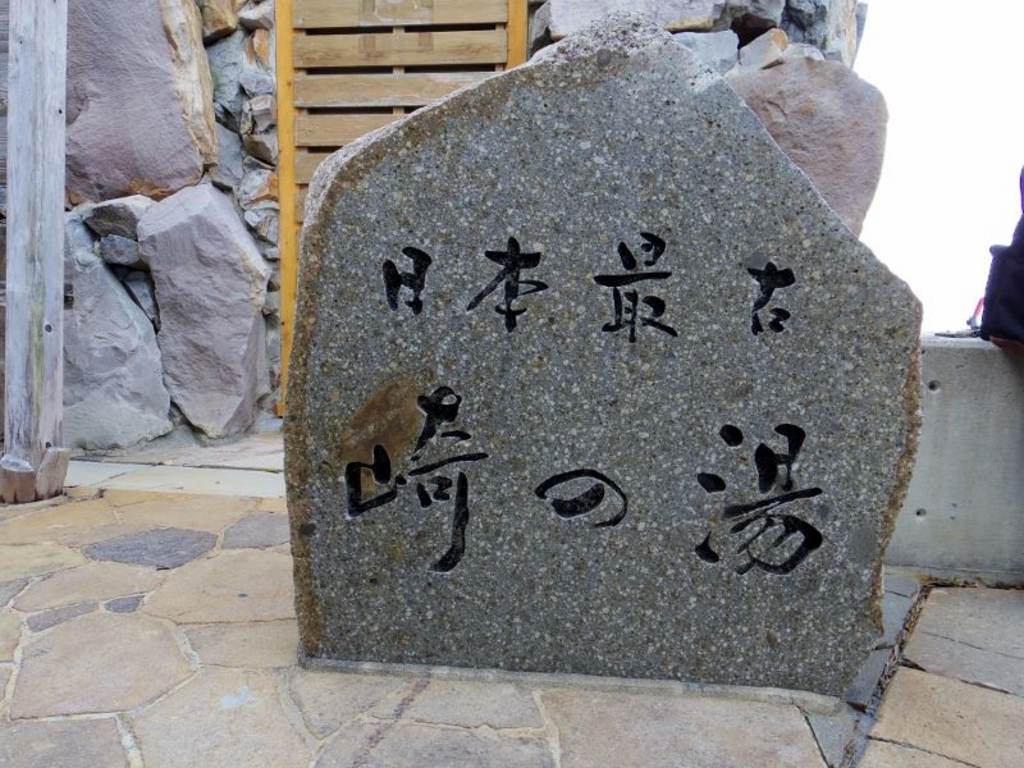 日本最古
崎の湯